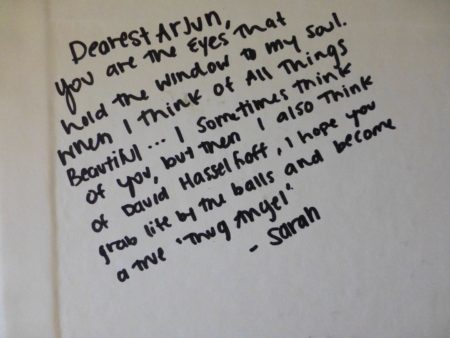 Dearest Arjun,
You are the Eyes That
hold the window to my soul.
When I think of All Things
Beautiful... I sometimes think
of you, but then I also think
of David Hasselhoff, I hope you
grab life by the balls and become
a true 'Thug Angel'.
- Sarah